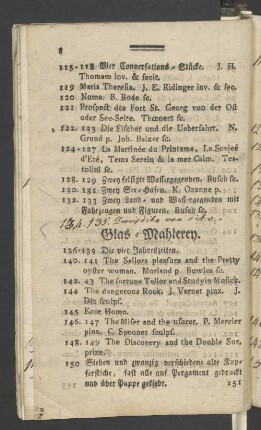 8
115-118 Vier Conversations-Stücke. J. H.
Thomam inv. & fecit.
119 Maria Theresia. J. E. Ridinger inv. & fec.
120 Numa. B. Rode fc.
121 Prospekt des Fort St. Georg von der Ost
oder See-Seite. Thœnert fc.
122. 123 Die Fischer und die Ueberfahrt. N.
Grund p. Joh. Balzer fc.
124-127 La Martinée du Printems, La Soyieé
d'Eté, Tems Serein & la mer Calm. Tes-
tolini fc.
128. 129 Zwey felsigte Wassergegenden. Busch fc.
130. 131 Zwey See-Hafen. N. Ozanne p.
132. 133 Zwey Land- und Wassergegenden mit
Fahrzeugen und Figuren. Busch fc.
134. 135.
Glas-Mahlerey.
136-139 Die vier Jahreszeiten.
140. 141 The Sailors pleasure and the Pretty
oyster woman. Morland p. Bowles fc.
142. 43 The fortune Teller and Study in Musick.
144 The dangerous Rock. J. Vernet pinx. J.
Dix sculpf.
145 Ecce Homo.
146. 147 The Miser and the usurer. P. Mercier
pinx. C. Spooner sculpf.
148. 149 The Discovery and the Double Sur-
prize.
150 Sieben und zwanzig verschiedene alte Kup-
ferstiche, fast alle auf Pergament gedruckt
und über Pappe geklebt.
151